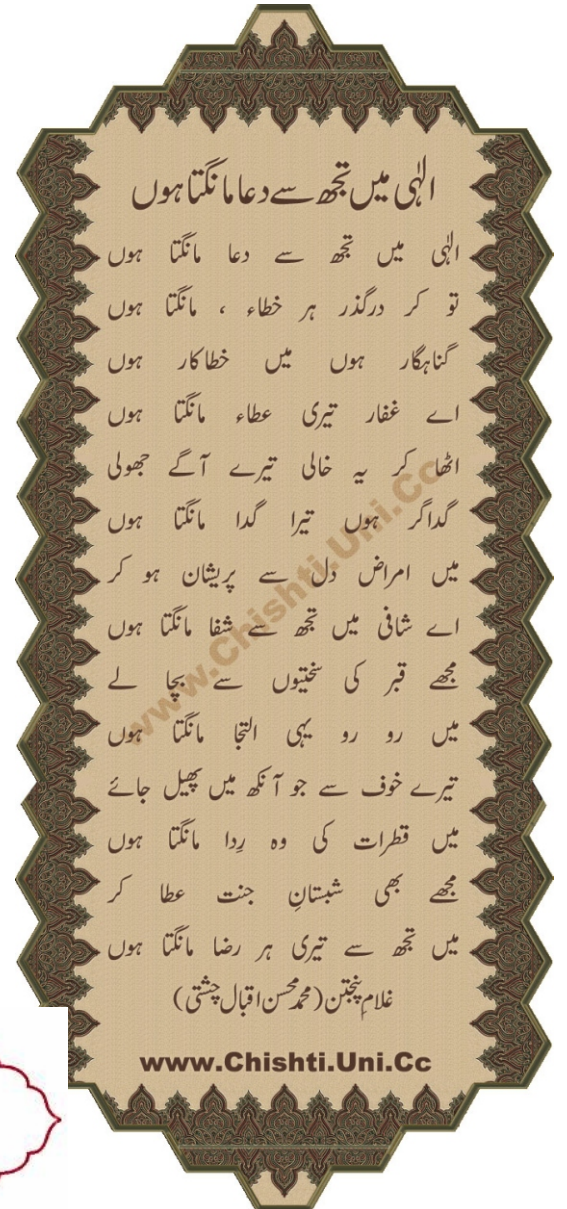 الٰہی میں تجھ سے دعا مانگتا ہوں
الٰہی میں تجھ سے دعا مانگتا ہوں
تو کر درگذر ہر خطاء ، مانگتا ہوں
گناہگار ہوں میں خطاکار ہوں
اے غفار تیری عطاء مانگتا ہوں
اٹھا کر یہ خالی تیرے آگے جھولی
گداگر ہوں تیرا گدا مانگتا ہوں
میں امراض دل سے پریشان ہو کر
اے شافی میں تجھ سے شفا مانگتا ہوں
مجھے قبر کی سختیوں سے بچا لے
میں رو رو یہی التجا مانگتا ہوں
تیرے خوف سے جو آنکھ میں پھیل جائے
میں قطرات کی وہ رِدا مانگتا ہوں
مجھے بھی شبستانِ جنت عطا کر
میں تجھ سے تیری ہر رضا مانگتا ہوں
غلامِ پنجتن (محمد محسن اقبال چشتی)
www.Chishti.Uni.Cc
www.Chishti.Uni.Cc